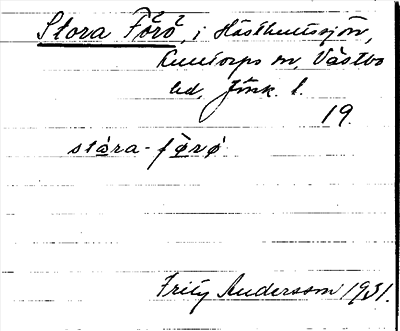 Stora Förö, i Hästhultssjön,
Kulltorps sn, Västbo
hd, Jönk. l.
19.
stɑ̀ra-fö̀rö̀
Fritz Andersson 1931.